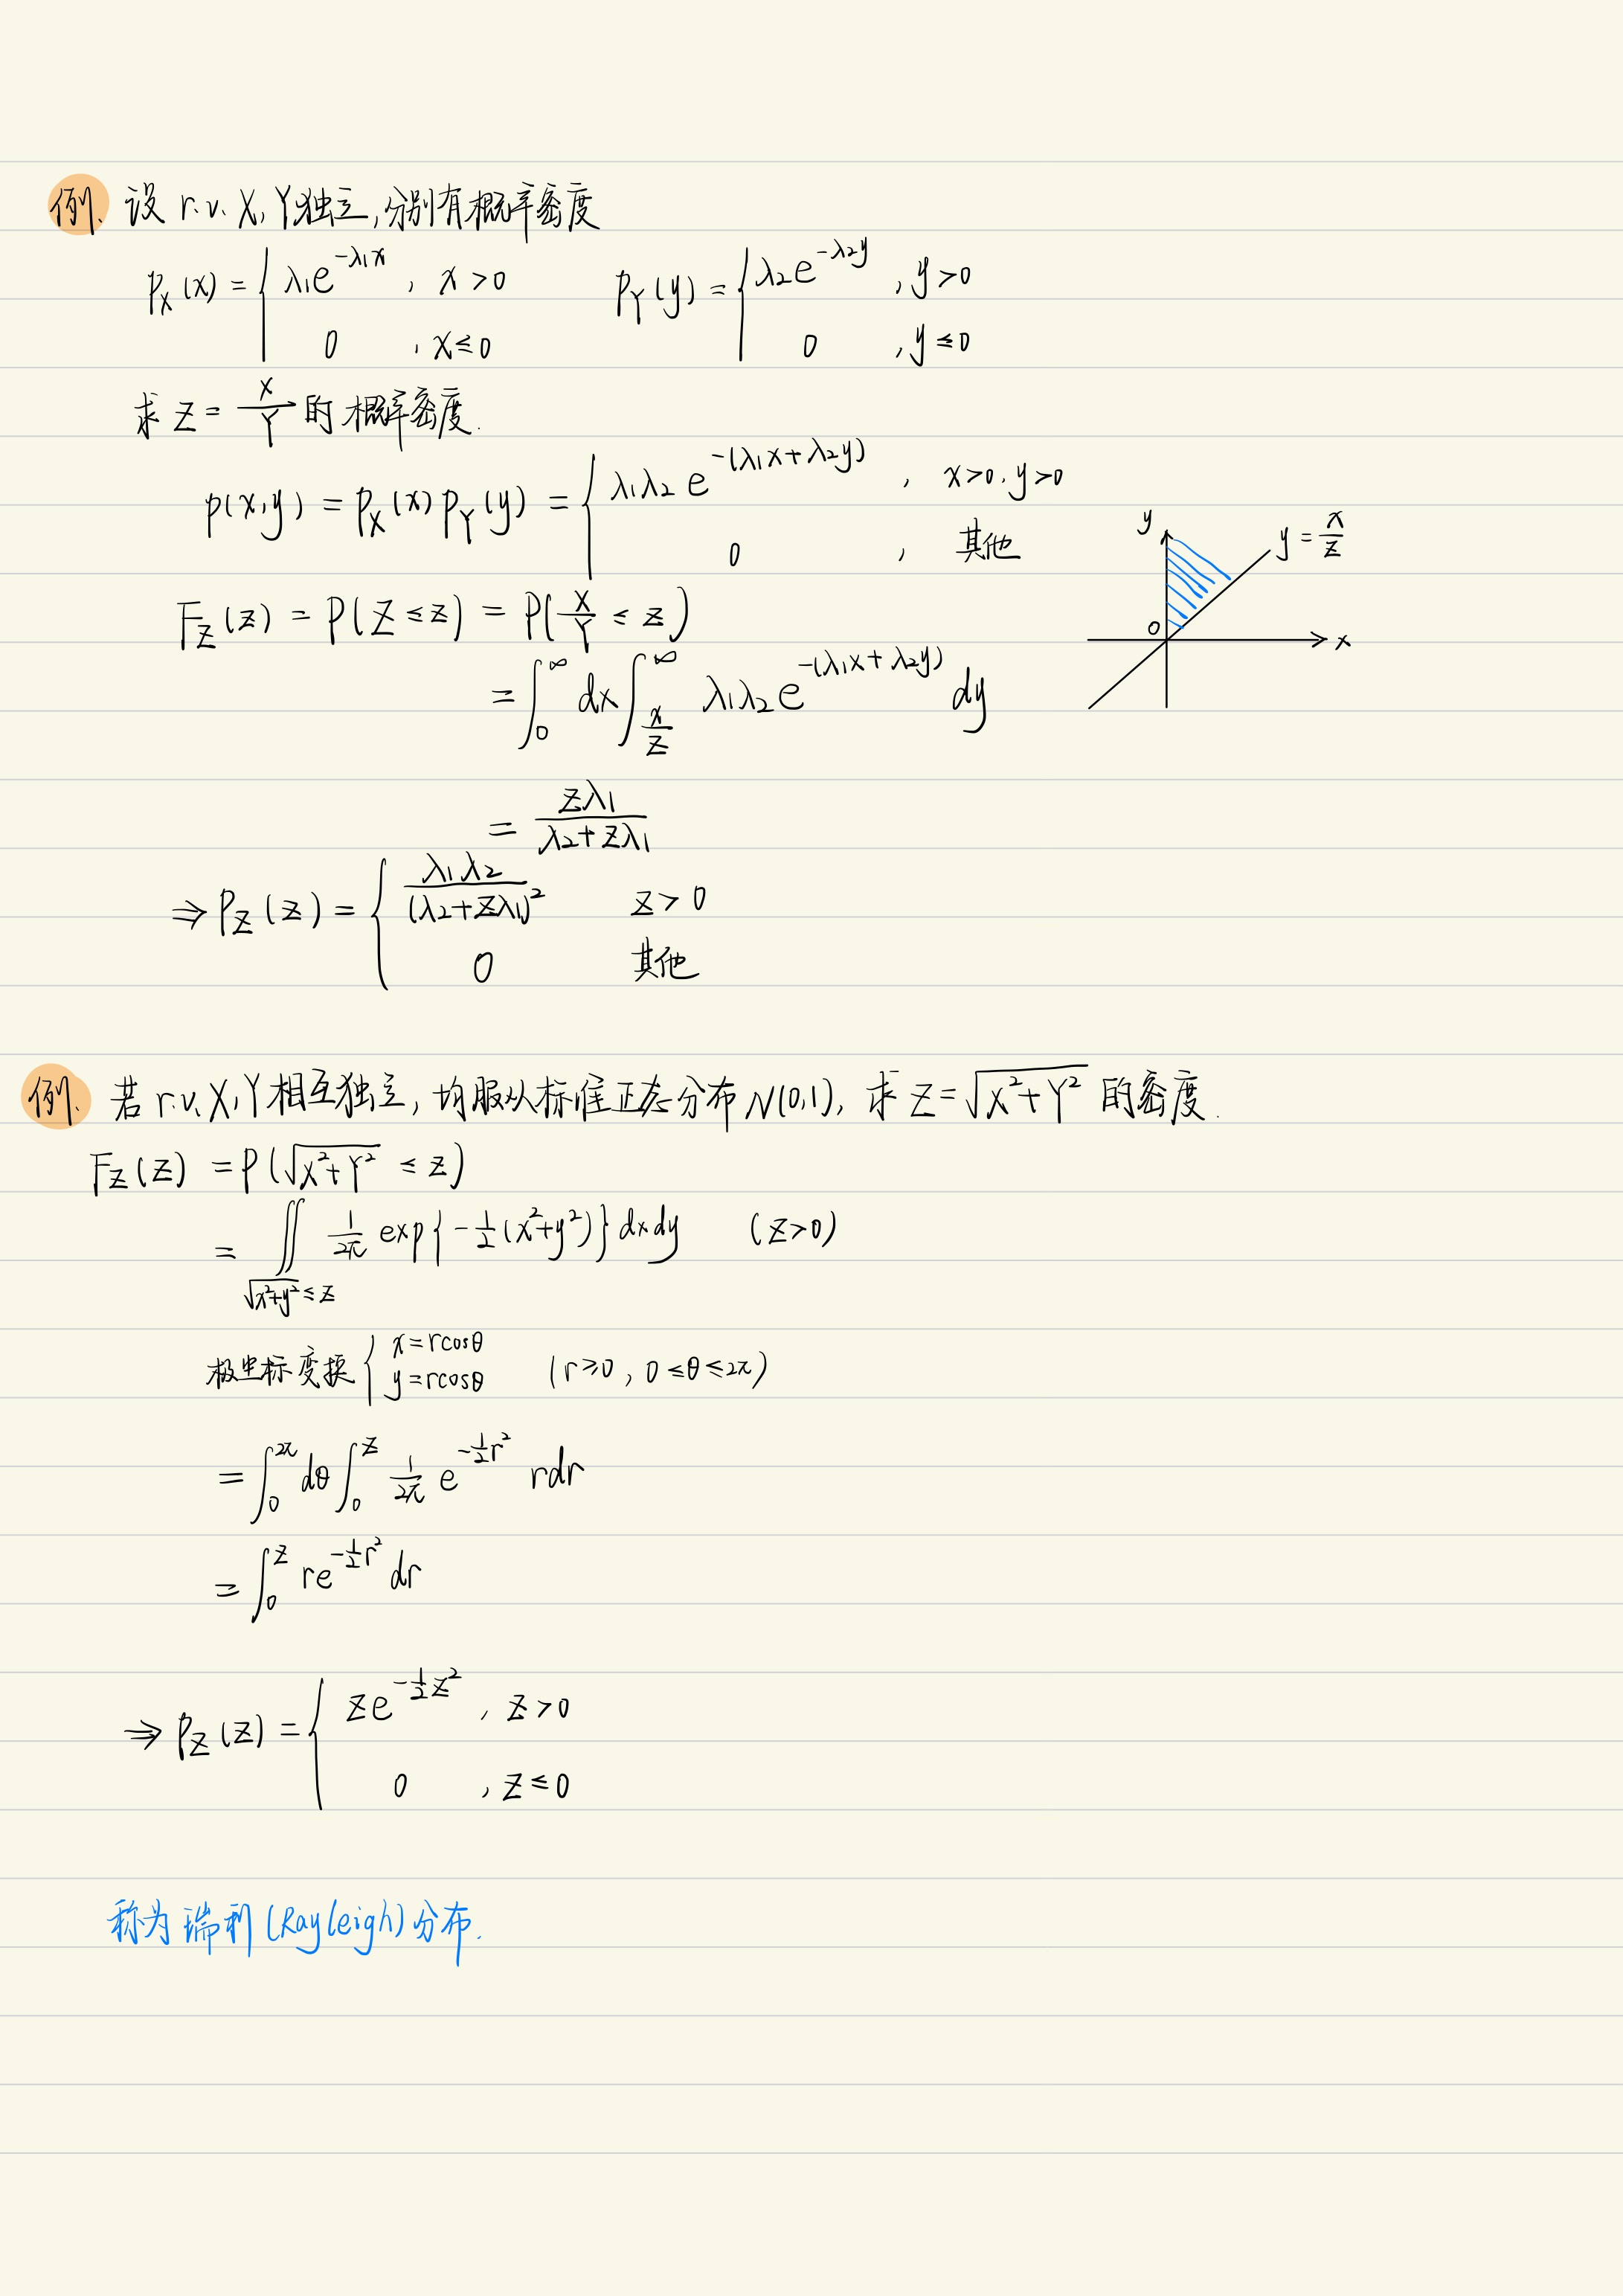 例. 设 r.v. X, Y独立, 分别有概率密度
p_X(x) = { λ₁e^{-λ₁x} , x>0 p_Y(y) = { λ₂e^{-λ₂y} , y>0
0 , x≤0 0 , y≤0
求 Z = X/Y 的概率密度.
p(x,y) = p_X(x) p_Y(y) = { λ₁λ₂ e^{-(λ₁x+λ₂y)} , x>0, y>0
0 , 其他
y
y = x/z
0
x
F_Z(z) = P(Z≤z) = P(X/Y ≤ z)
= ∫_0^∞ dx ∫_{x/z}^∞ λ₁λ₂e^{-(λ₁x+λ₂y)} dy
= zλ₁/(λ₂+zλ₁)
⇒ P_Z(z) = { λ₁λ₂/(λ₂+zλ₁)² z>0
0 其他
例. 若 r.v. X, Y相互独立, 均服从标准正态分布 N(0,1), 求 Z=√(X²+Y²) 的密度.
F_Z(z) = P(√(X²+Y²) ≤ z)
= ∬_{√(x²+y²)≤z} 1/2π exp{-1/2(x²+y²)} dxdy (z>0)
极坐标变换 { x=rcosθ
y=rcosθ (r≥0, 0≤θ≤2π)
= ∫_0^{2π} dθ ∫_0^z 1/2π e^{-1/2 r²} rdr
= ∫_0^z re^{-1/2 r²} dr
⇒ p_Z(z) = { ze^{-1/2 z²} , z>0
0 , z≤0
称为瑞利(Rayleigh)分布.